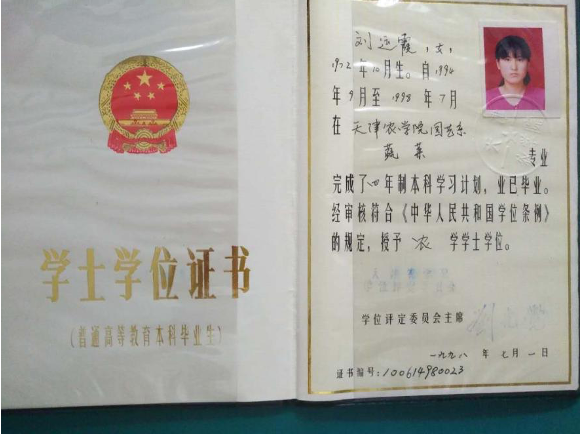 学士学位证书
(普通高等教育本科毕业生)
刘远霞,女,
1972年10月生。自1994
年9月至1998年7月
在天津农学院园艺系
蔬菜 专业
完成了四年制本科学习计划,业已毕业。
经审核符合《中华人民共和国学位条例》
的规定,授予农学学士学位。
学位评定委员会主席
一九九八年七月一日
证书编号:100614980023